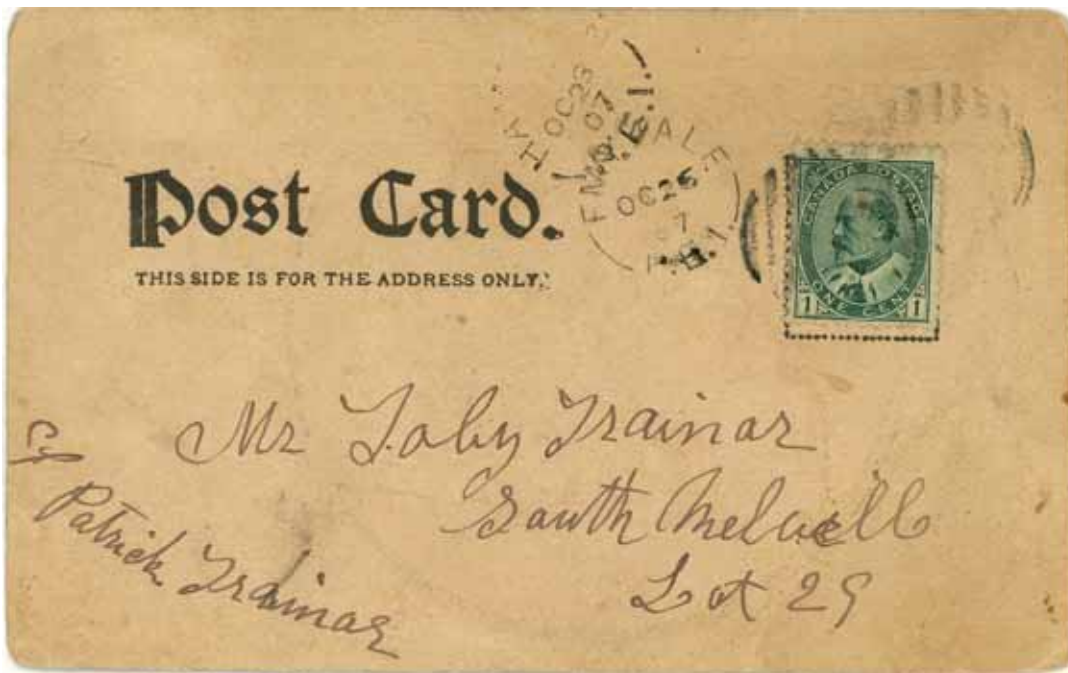 Post Card.
THIS SIDE IS FOR THE ADDRESS ONLY.
HA
OC 25
07
P.E.I.
EMYVALE
OC 25
7
P.E.I.
CANADA POSTAGE
1 ONE CENT 1
Mr Toby Trainor
South Melvill
Lot 29
c/o
Patrick Trainor